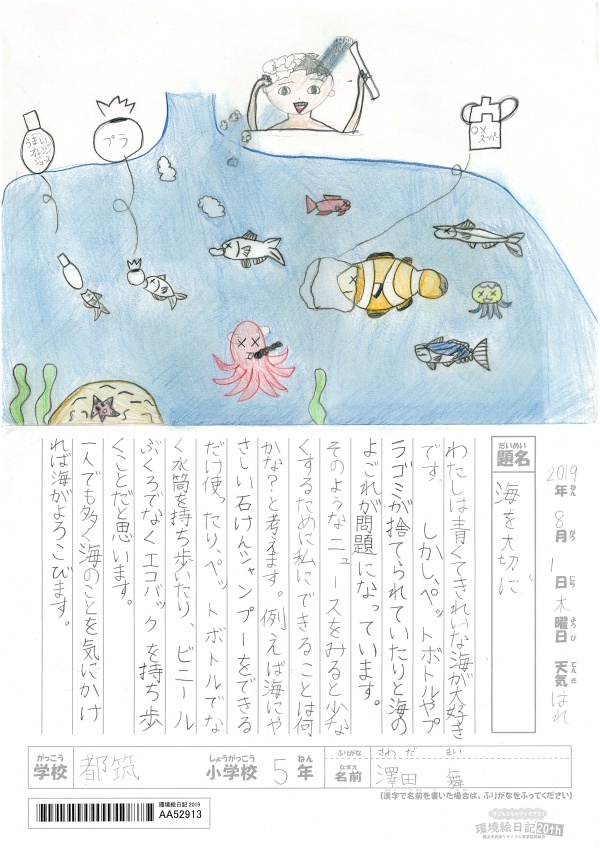 うまい
オレンジ
ジュース
プラ
OX
スーパー
2019年ねん 8月がつ 1日にち 木曜日ようび 天気てんき はれ
題名だいめい 海を大切に
わたしは青くてきれいな海が大好き
です。 しかし、ペットボトルやプ
ラゴミが捨てられていたりと海の
よごれが問題になっています。
そのようなニュースをみると少な
くするために私にできることは何
かな？と考えます。例えば海にや
さしい石けんシャンプーをできる
だけ使ったり、ペットボトルでな
く水筒を持ち歩いたり、ビニール
ぶくろでなくエコバックを持ち歩
くことだと思います。
一人でも多く海のことを気にかけ
れば海がよろこびます。
学校がっこう 都筑 小学校しょうがっこう 5年ねん
ふりがな さわ だ まい
名前なまえ 澤田 舞
(漢字で名前を書いた場合は、ふりがなをふってください)
環境絵日記 2019
AA52913
環境絵日記20th